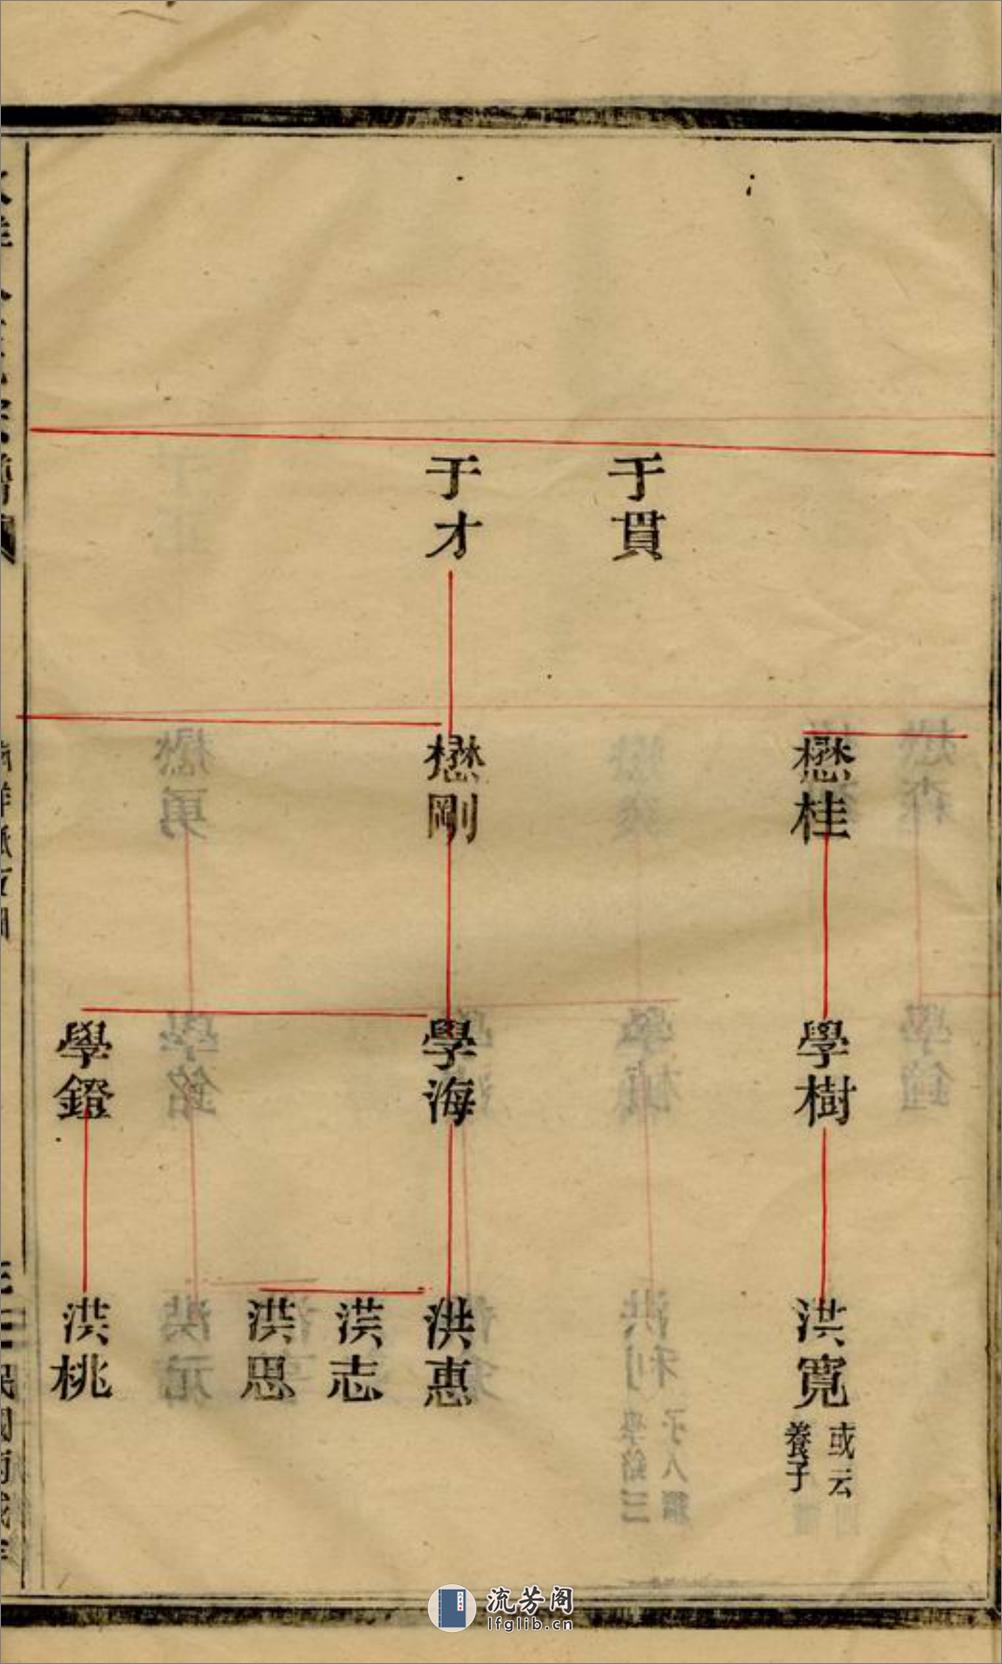 于貫
于才
懋桂
懋剛
學樹
學海
學鐙
洪寬
或云
養子
洪惠
洪志
洪思
洪桃
流芳阁
lfglib.cn